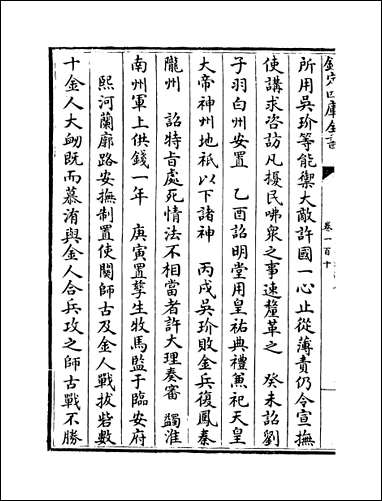 欽定四庫全書
卷一百十
所用吳玠等能禦大敵許國一心止從薄責仍令宣撫
使講求咨訪凡擾民咈衆之事速釐革之　癸未詔劉
子羽白州安置　乙酉詔明堂用皇祐典禮兼祀天皇
大帝神州地祇以下諸神　丙戌吳玠敗金兵復鳳秦
隴州　詔特旨處死情法不相當者許大理奏審　蠲淮
南州軍上供錢一年　庚寅置孳生牧馬監于臨安府
熙河蘭廓路安撫制置使關師古及金人戰拔砦數
十金人大衂既而慕洧與金人合兵攻之師古戰不勝